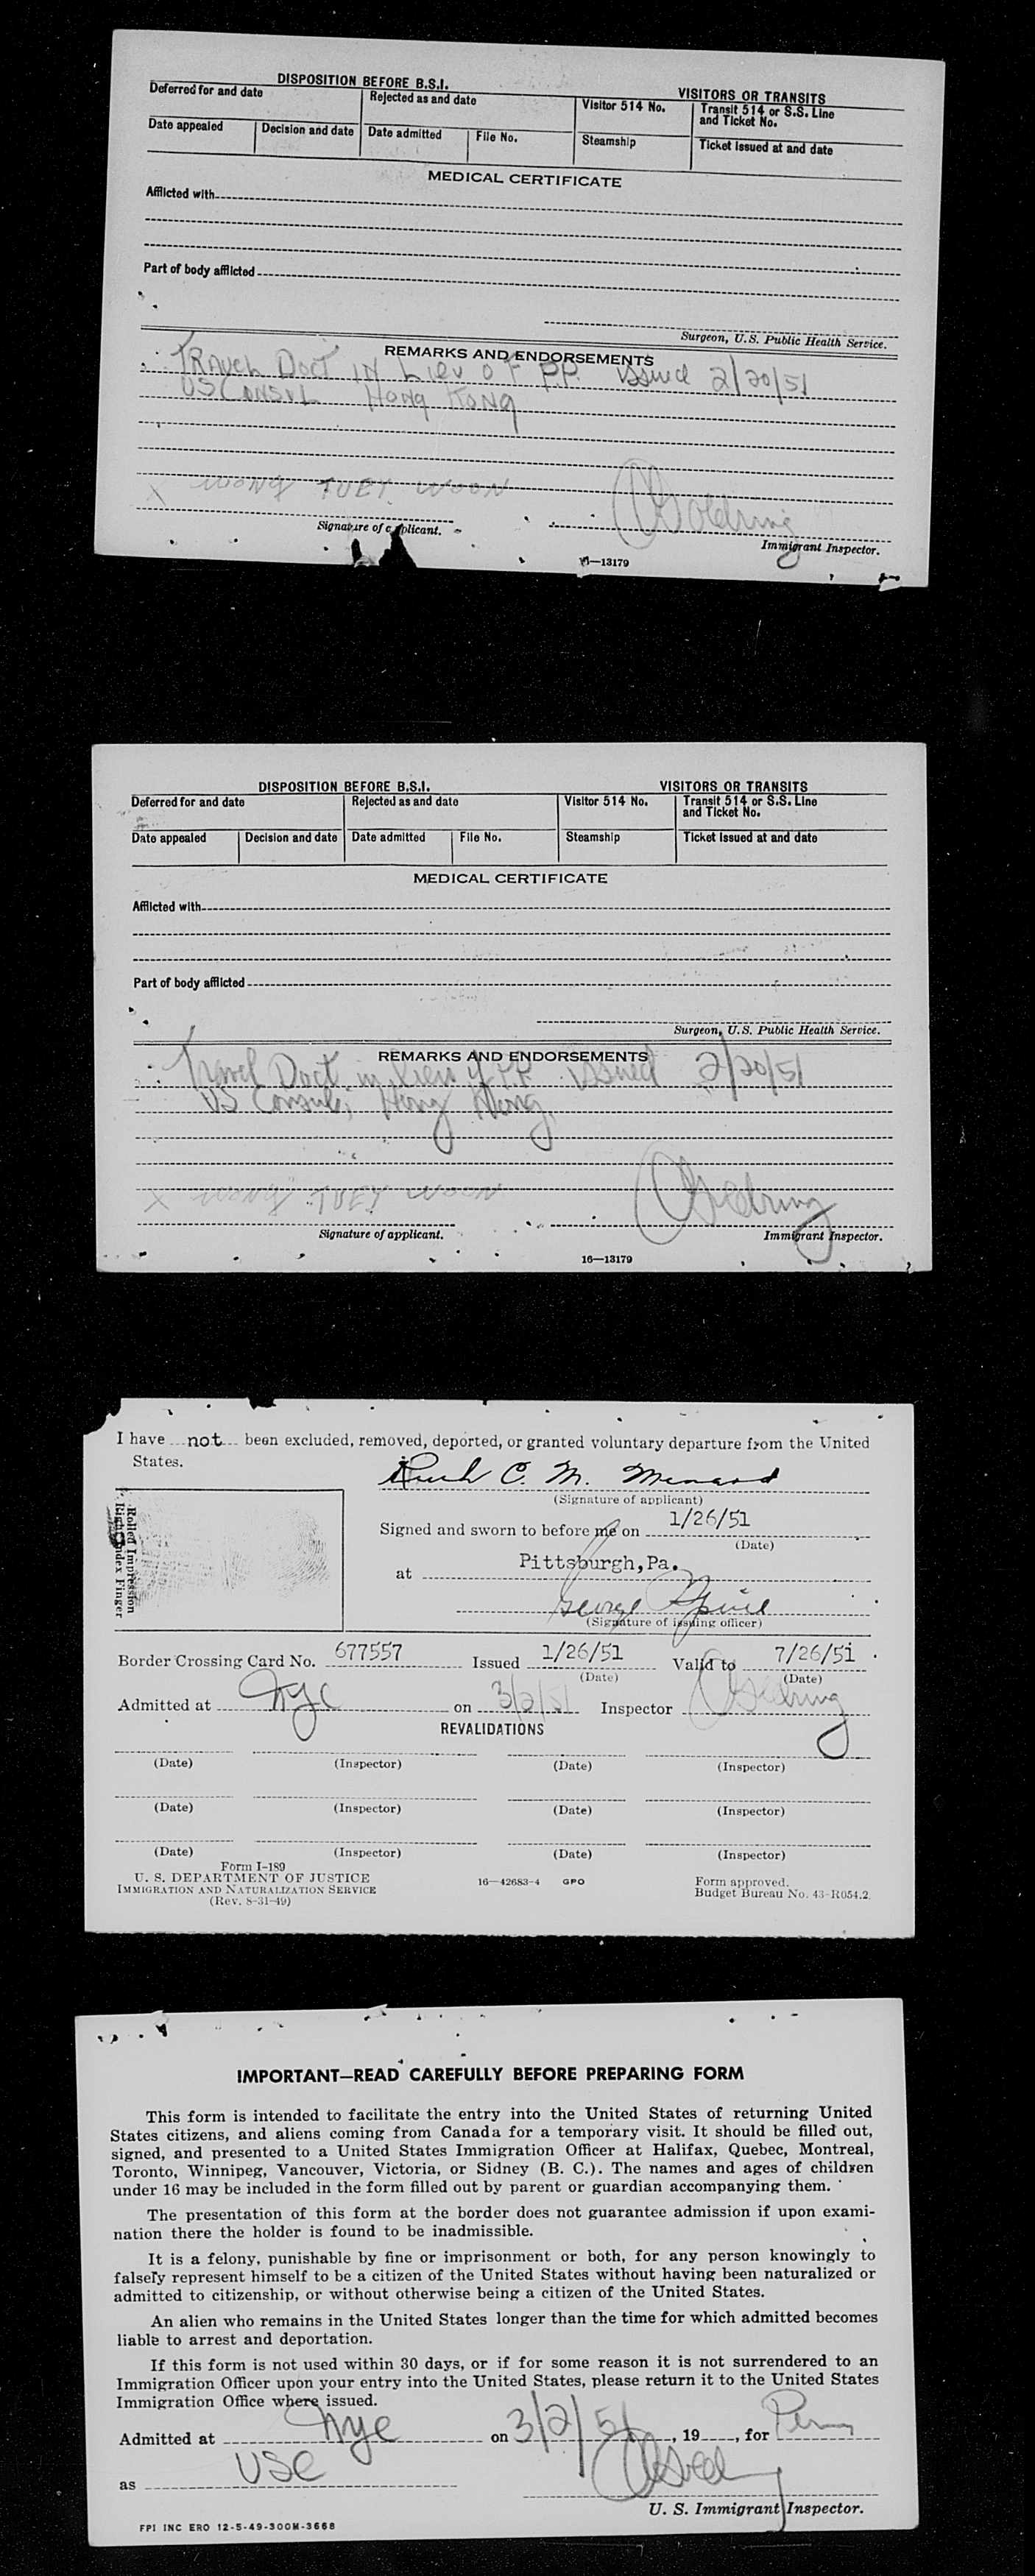 DISPOSITION BEFORE B.S.I.
VISITORS OR TRANSITS
Deferred for and date
Rejected as and date
Visitor 514 No.
Transit 514 or S.S. Line
and Ticket No.
Date appealed
Decision and date
Date admitted
File No.
Steamship
Ticket issued at and date
MEDICAL CERTIFICATE
Afflicted with
Part of body afflicted
Surgeon, U.S. Public Health Service.
REMARKS AND ENDORSEMENTS
TRAVEL Doct IN Lieu oF P.P. issued 2/20/51
US CONSUL HONG KONG
X WONG TUEY WOON
Signature of applicant.
Immigrant Inspector.
—13179
DISPOSITION BEFORE B.S.I.
VISITORS OR TRANSITS
Deferred for and date
Rejected as and date
Visitor 514 No.
Transit 514 or S.S. Line
and Ticket No.
Date appealed
Decision and date
Date admitted
File No.
Steamship
Ticket issued at and date
MEDICAL CERTIFICATE
Afflicted with
Part of body afflicted
Surgeon, U.S. Public Health Service.
REMARKS AND ENDORSEMENTS
Travel Doct. in lieu of P.P. issued 2/20/51
US Consul, Hong Kong.
X WONG TUEY WOON
Signature of applicant.
Immigrant Inspector.
16—13179
I have not been excluded, removed, deported, or granted voluntary departure from the United
States.
C. M.
(Signature of applicant)
Rolled Impression
Right Index Finger
Signed and sworn to before me on 1/26/51
(Date)
at Pittsburgh, Pa.
George
(Signature of issuing officer)
Border Crossing Card No. 677557 Issued 1/26/51 Valid to 7/26/51
(Date)
(Date)
Admitted at NYC on 3/2/51 Inspector
REVALIDATIONS
(Date) (Inspector) (Date) (Inspector)
(Date) (Inspector) (Date) (Inspector)
(Date) (Inspector) (Date) (Inspector)
Form I-189
U. S. DEPARTMENT OF JUSTICE
IMMIGRATION AND NATURALIZATION SERVICE
(Rev. 8-31-49)
16—42683-4 GPO
Form approved.
Budget Bureau No. 43-R054.2.
IMPORTANT—READ CAREFULLY BEFORE PREPARING FORM
This form is intended to facilitate the entry into the United States of returning United
States citizens, and aliens coming from Canada for a temporary visit. It should be filled out,
signed, and presented to a United States Immigration Officer at Halifax, Quebec, Montreal,
Toronto, Winnipeg, Vancouver, Victoria, or Sidney (B. C.). The names and ages of children
under 16 may be included in the form filled out by parent or guardian accompanying them.
The presentation of this form at the border does not guarantee admission if upon exami-
nation there the holder is found to be inadmissible.
It is a felony, punishable by fine or imprisonment or both, for any person knowingly to
falsely represent himself to be a citizen of the United States without having been naturalized or
admitted to citizenship, or without otherwise being a citizen of the United States.
An alien who remains in the United States longer than the time for which admitted becomes
liable to arrest and deportation.
If this form is not used within 30 days, or if for some reason it is not surrendered to an
Immigration Officer upon your entry into the United States, please return it to the United States
Immigration Office where issued.
Admitted at NYC on 3/2/51, 19, for Perm
as USC
U. S. Immigrant Inspector.
FPI INC ERO 12-5-49-300M-3668